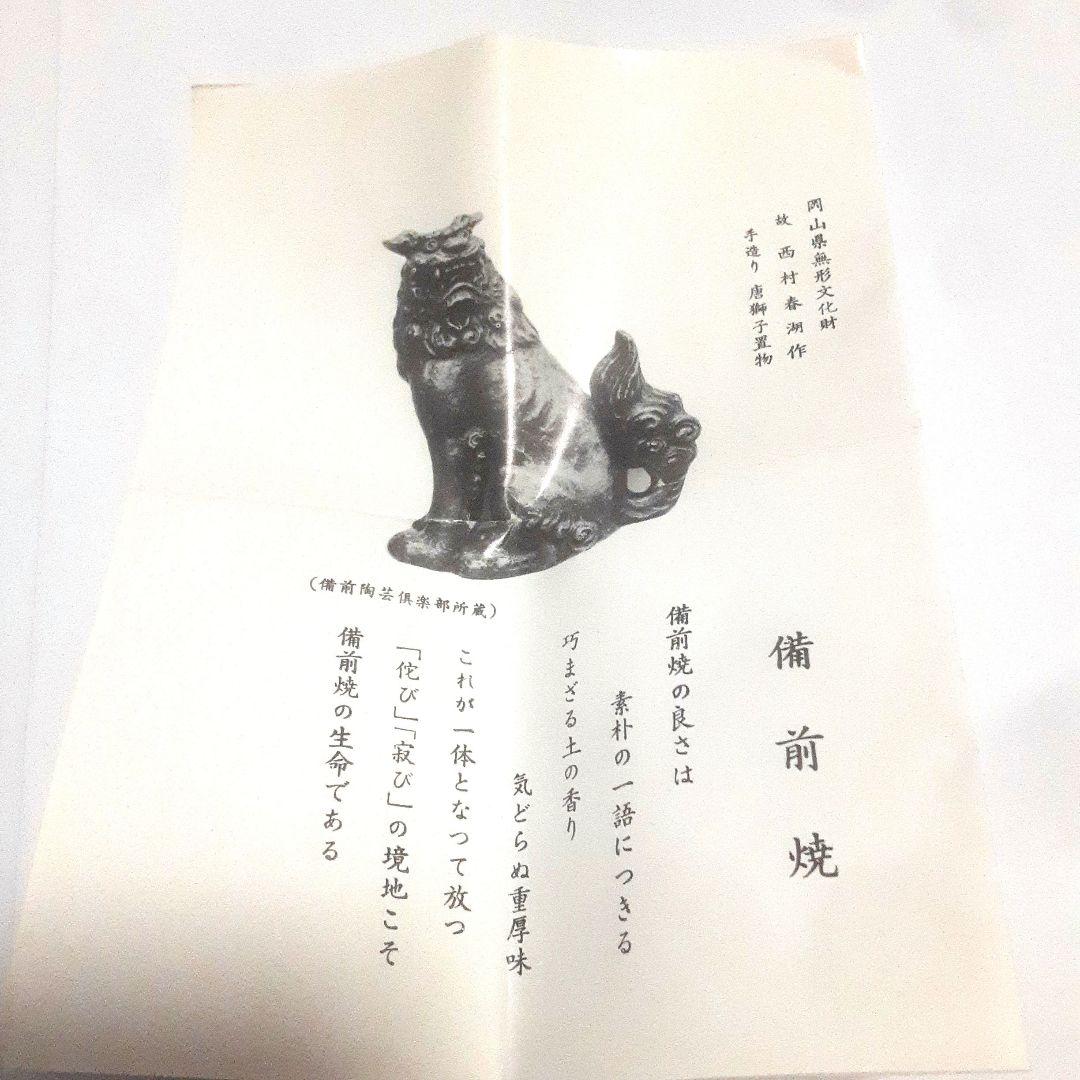 岡山県無形文化財
故 西村春湖作
手造り 唐獅子置物
(備前陶芸倶楽部所蔵)
備前焼
備前焼の良さは
素朴の一語につきる
巧まざる土の香り
気どらぬ重厚味
これが一体となつて放つ
「侘び」「寂び」の境地こそ
備前焼の生命である